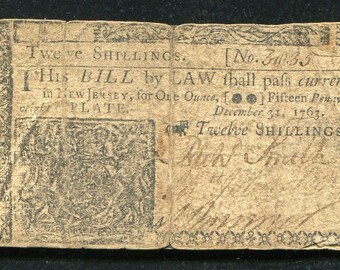 Twelve Shillings. [No. 3035
THis BILL by LAW shall pass curren
in New Jersey, for One Ounce, [●●] Fifteen Penny
weight PLATE. December 31, 1763.
Twelve SHILLINGS
Smith